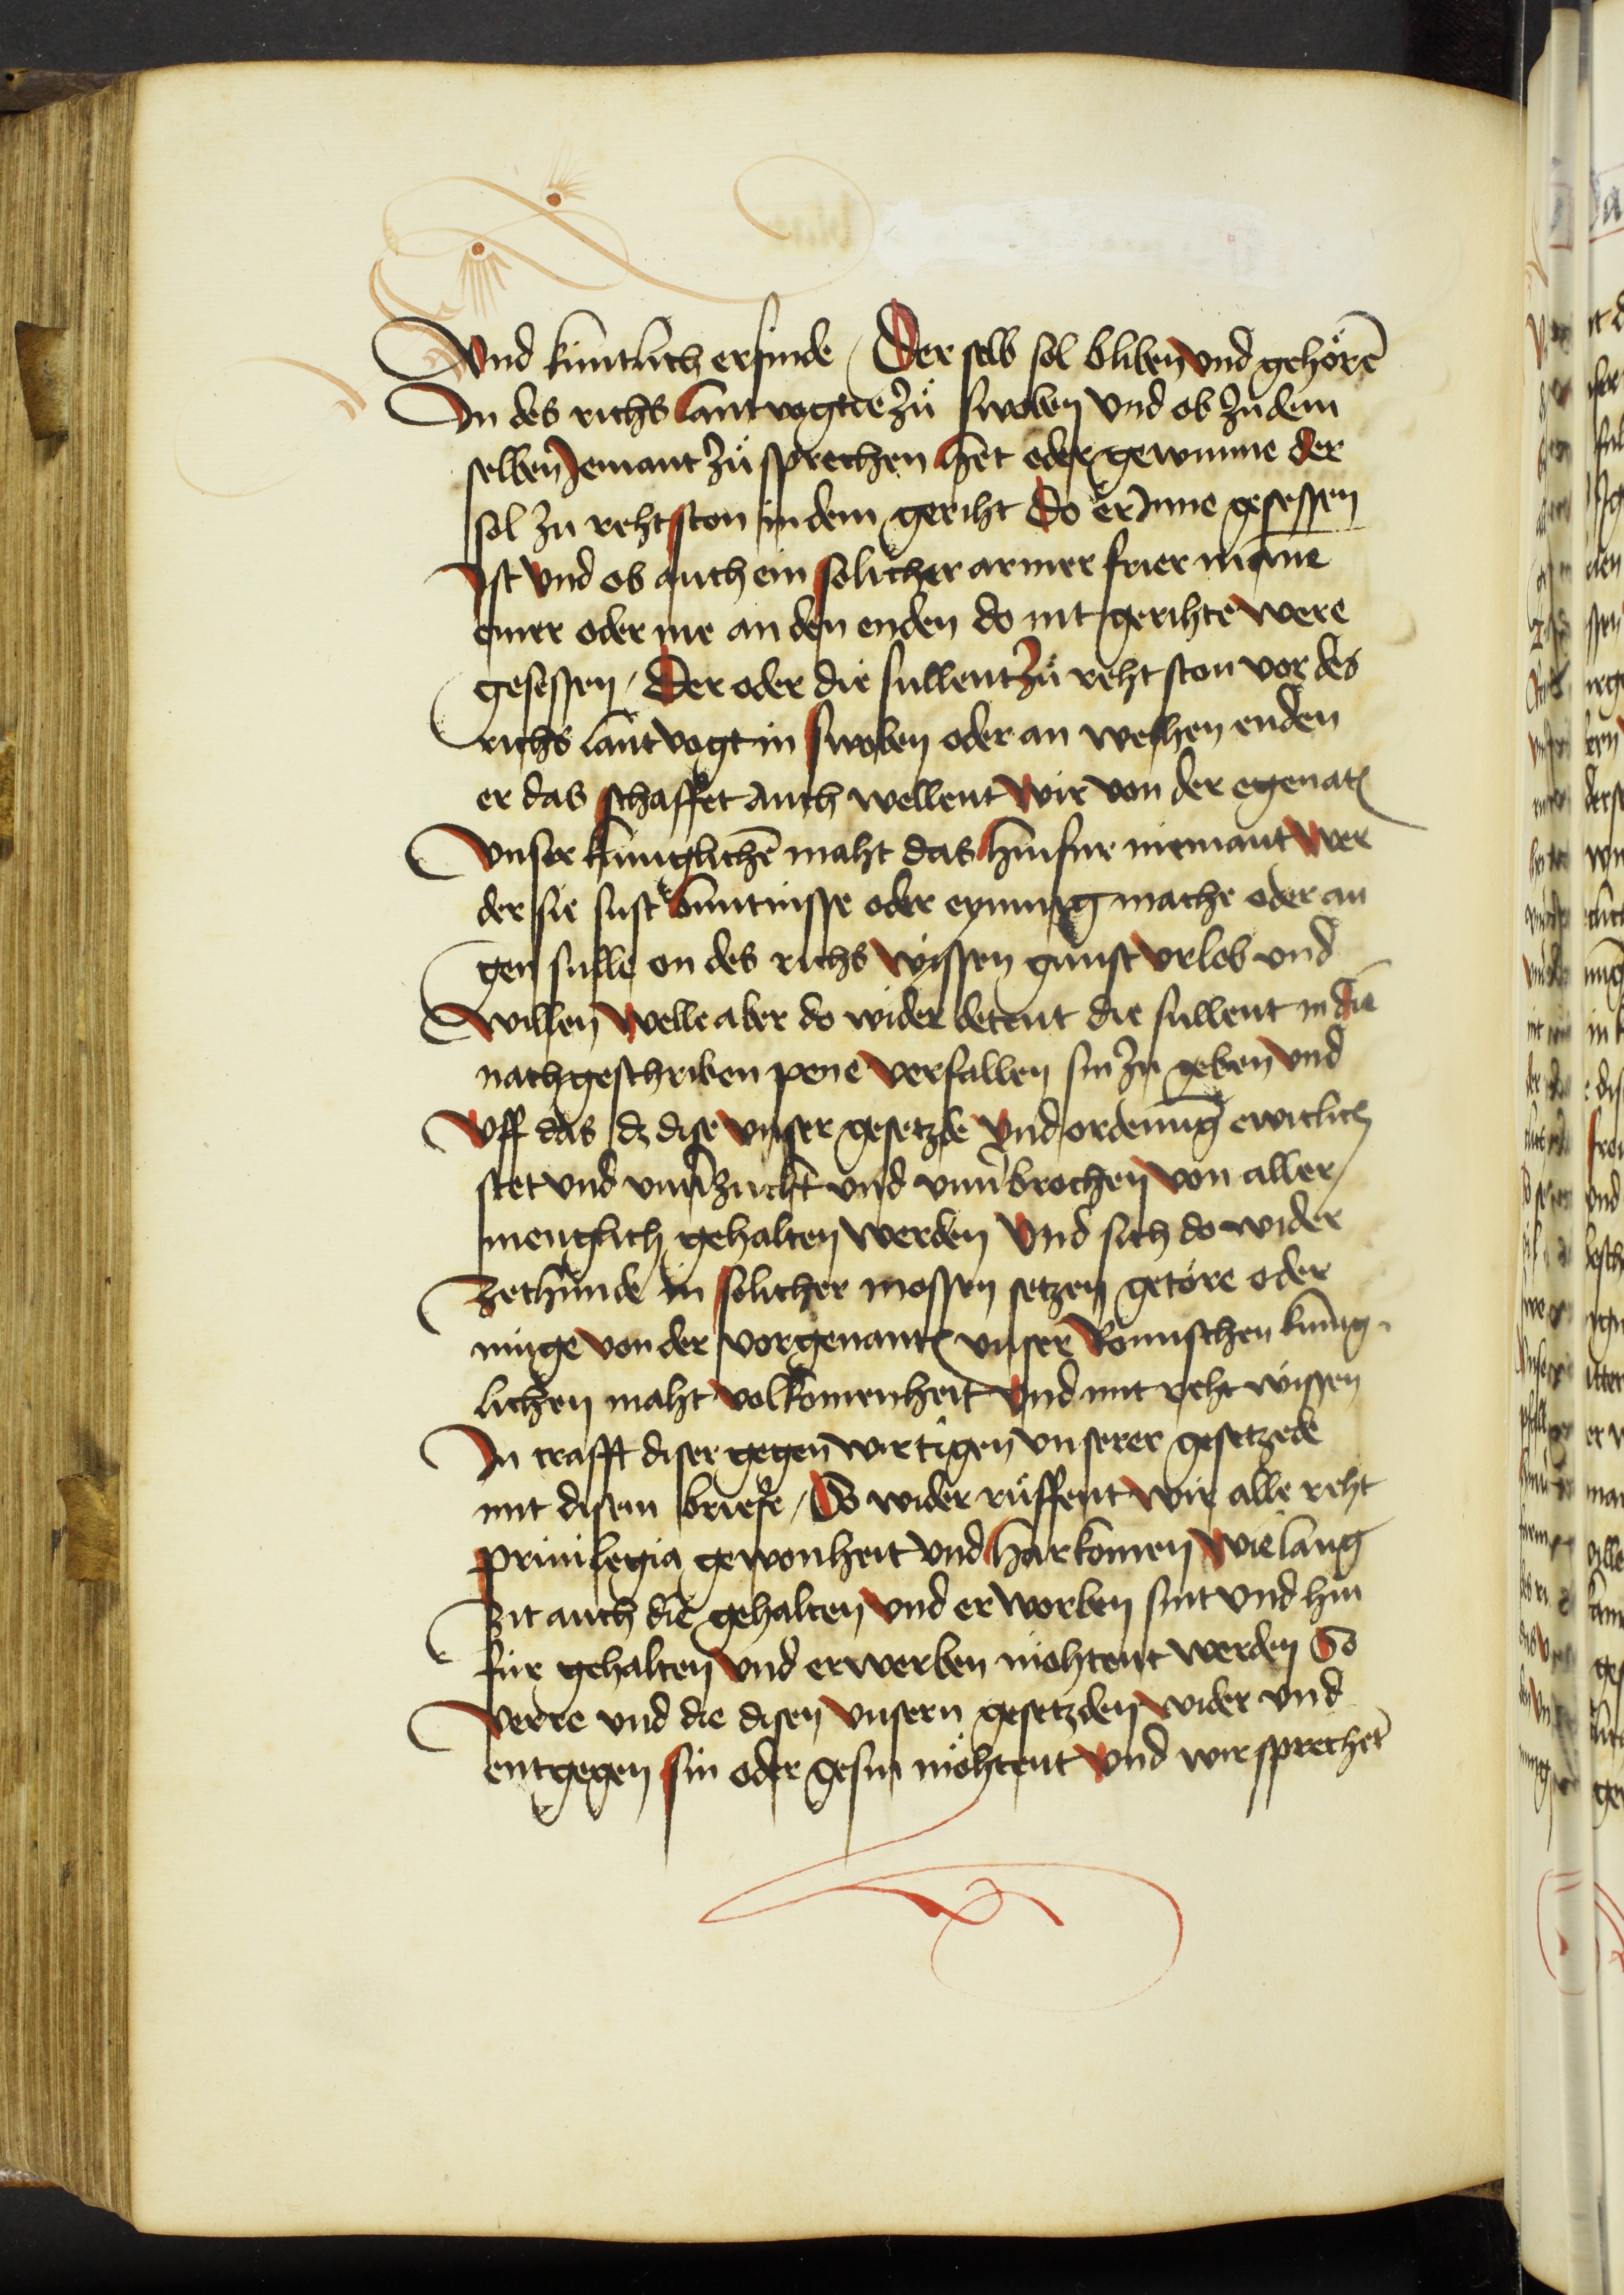 Vnd kuntlich erfinde / Der selb sol bliben vnd gehoͤrē
In des richs lantvogtie zuͤ swoben vnd ob zu dem
selben Jemant zuͤ sprechen hēt oder gewunne der
sol zu reht ston in dem geriht do er Jnne gesessen
Ist vnd ob auch ein solicher armer frier manne
einer oder me an den enden do nit gerihte were
gesessen / Der oder die sullent zuͤ reht ston vor des
richs lantvogt in swoben oder an welhen enden
er das schaffet Auch wellent wir von der egenatē
vnser kuniglichē maht das hinfur niemant wer
der sie sust buntnisse oder eynung mache oder an
gen sulle on des richs wissen gunst vrlob vnd
willen welle aber do wider detent die sullent in die
nachgeschriben pene verfallen sin zu geben vnd
Vff das dz dise vnser gesetzde vnd ordenung ewiclich
stet vnd vnuͤzuckt vnd vnuͤbrochen von aller
menglich gehalten werden vnd sich do wider
Zethunde in solicher mossen setzen getöre oder
muge von der vorgenantē vnser Romischen kunig
lichen maht volkomenheit vnd mit reht wissen
In crafft diser gegenwirtigen vnserer gesetzede
mit disem briefe / So widerruͤffent wir alle reht
priuilegia gewonheit vnd harkomen wie lang
Zit auch die gehalten vnd erworben sint vnd hin
fur gehalten vnd erwerben möhtent werden So
verre vnd die disen vnsern gesetzden wider vnd
entgegen sin oder gesin möhtent vnd wir sprechet